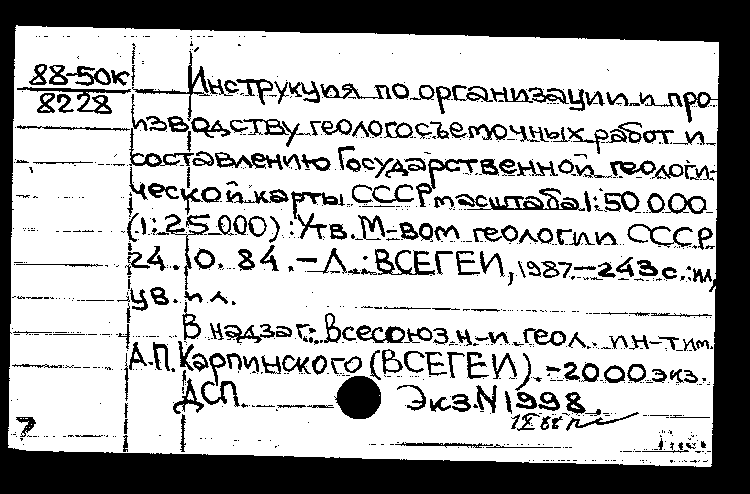 88-50к
8228
Инструкция по организации и про
изводству геологосъемочных работ и
составлению Государственной геологи-
ческой карты СССР масштаба 1:50 000
(1:25 000): Утв. М-вом геологии СССР
24.10.84. – Л.: ВСЕГЕИ, 1987. – 243 с.: ил,
цв. ил.
В надзаг: Всесоюз н.-и геол. ин-т им.
А.П. Карпинского (ВСЕГЕИ). – 2000 экз.
ДСП Экз. N 1998.
7